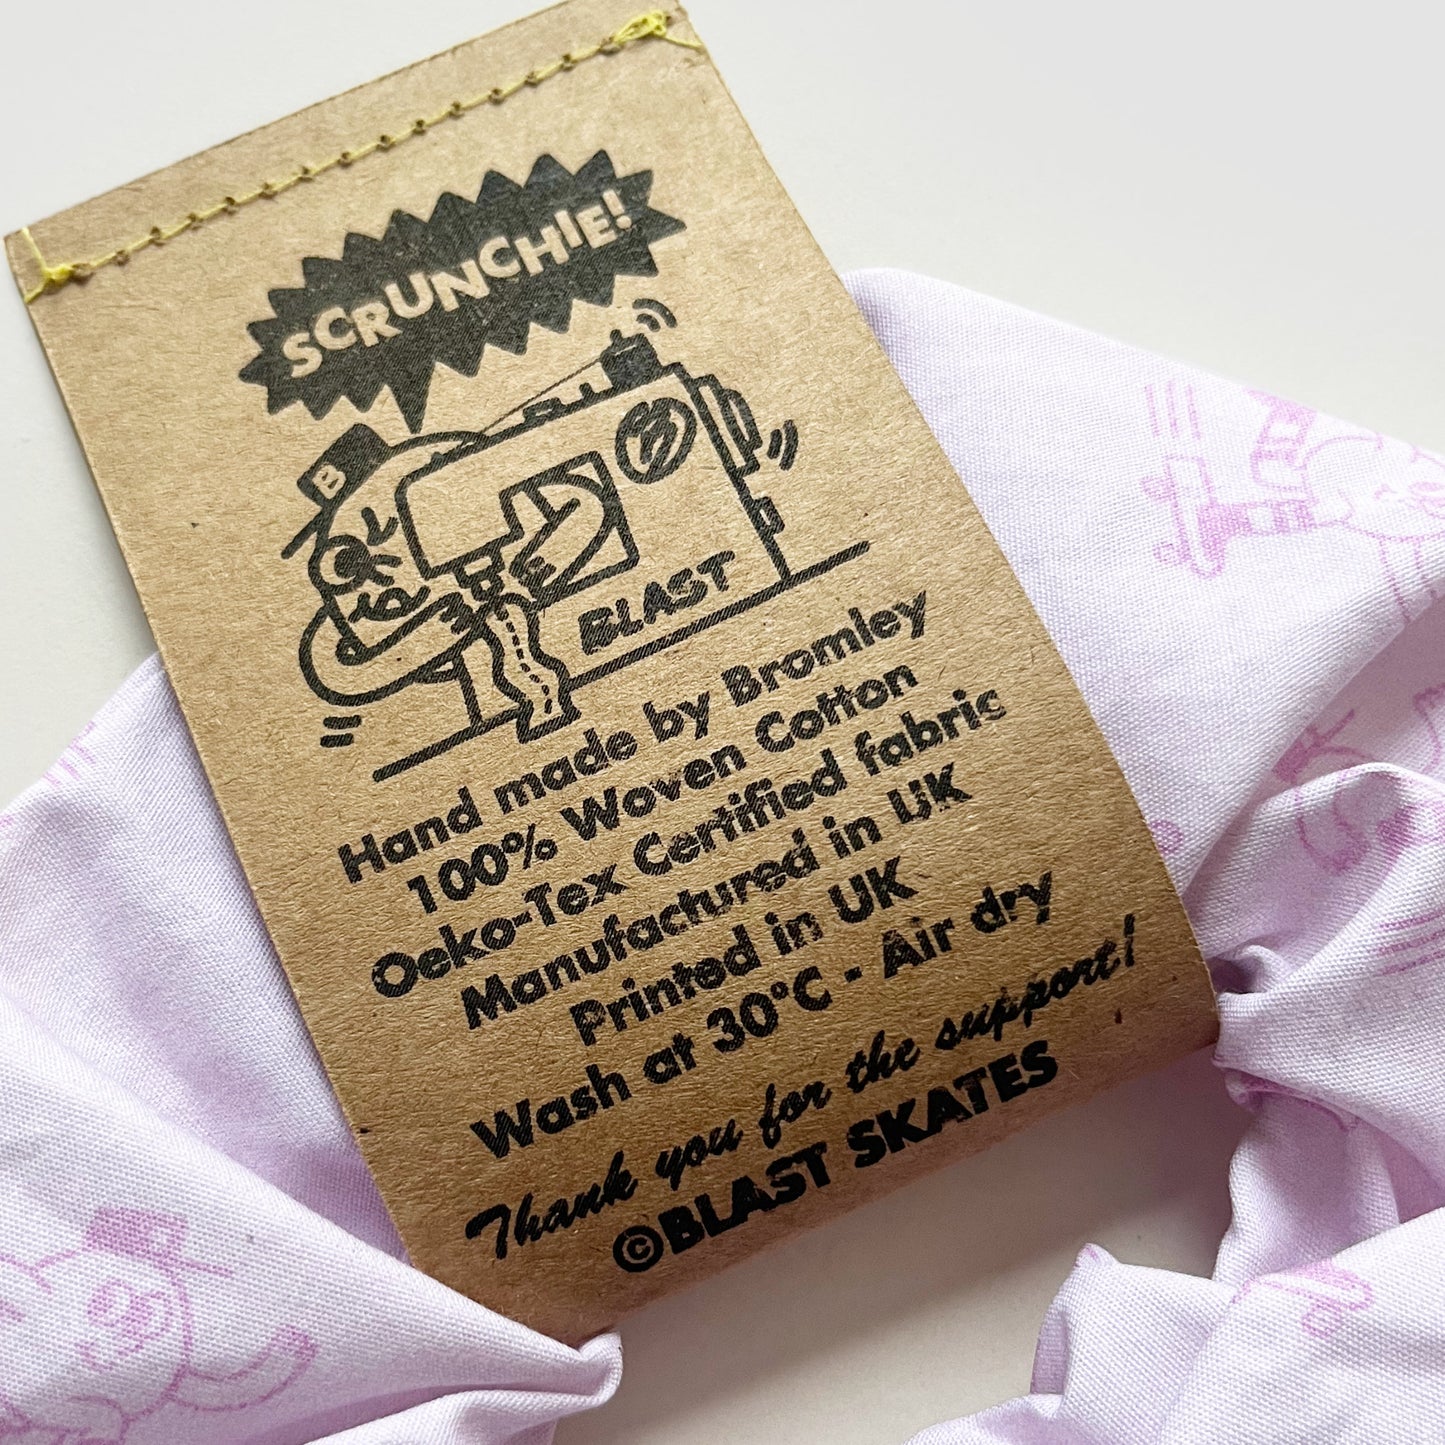 SCRUNCHIE!
B
BLAST
Hand made by Bromley
100% Woven Cotton
Oeko-Tex Certified fabric
Manufactured in UK
Printed in UK
Wash at 30°C - Air dry
Thank you for the support!
©BLAST SKATES